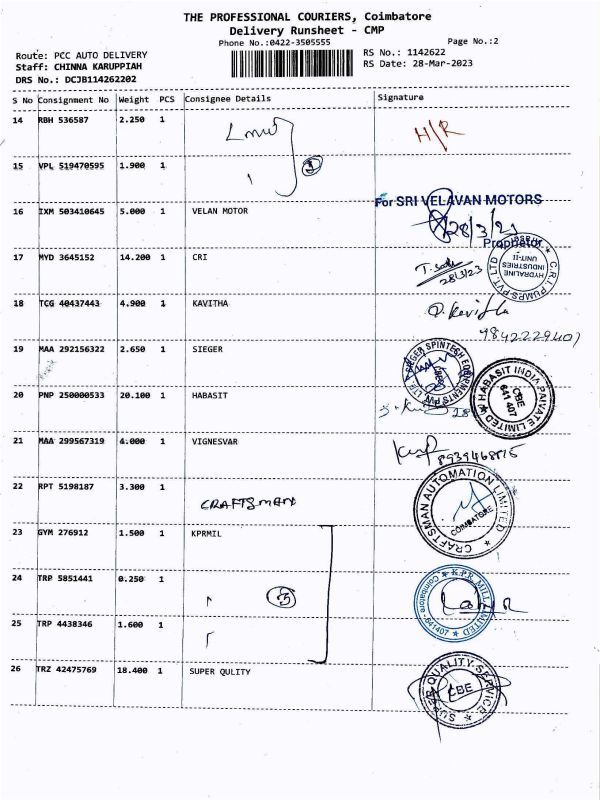 THE PROFESSIONAL COURIERS, Coimbatore
Delivery Runsheet - CMP
Phone No.:0422-3505555
Page No.:2
Route: PCC AUTO DELIVERY
Staff: CHINNA KARUPPIAH
DRS No.: DCJB114262202
RS No.: 1142622
RS Date: 28-Mar-2023
S No Consignment No Weight PCS Consignee Details Signature
14 RBH 536587 2.250 1 H/R
15 VPL 519470595 1.900 1
For SRI VELAVAN MOTORS
16 IXM 503410645 5.000 1 VELAN MOTOR
Proprietor
17 MYD 3645152 14.200 1 CRI
28/3/23
C.R.I. PUMPS PVT. LTD
HYDRALINE INDUSTRIES UNIT-II
18 TCG 40437443 4.900 1 KAVITHA
9842229407
19 MAA 292156322 2.650 1 SIEGER
SIEGER SPINTECH EQUIPMENTS PVT. LTD.
20 PNP 250000533 20.100 1 HABASIT
28
HABASIT INDIA PRIVATE LIMITED
CBE
641 407
21 MAA 299567319 4.000 1 VIGNESVAR
8939468815
22 RPT 5198187 3.300 1 CRAFTSMAN
CRAFTSMAN AUTOMATION LIMITED
COIMBATORE
23 GYM 276912 1.500 1 KPRMIL
24 TRP 5851441 0.250 1
K.P.R. MILL LIMITED
Coimbatore - 641407
25 TRP 4438346 1.600 1
26 TRZ 42475769 18.400 1 SUPER QULITY
SUPER QUALITY SERVICE
CBE